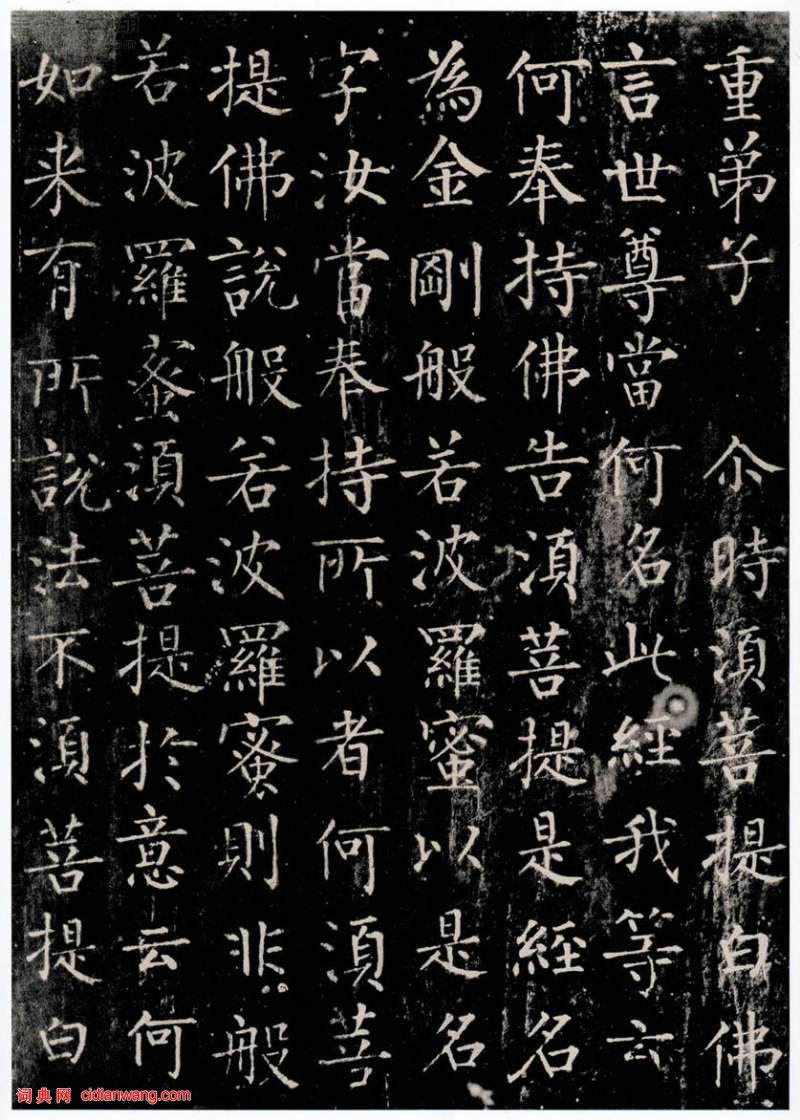 重弟子 尒時須菩提白佛
言世尊當何名此經我等云
何奉持佛告須菩提是經名
為金剛般若波羅蜜以是名
字汝當奉持所以者何須菩
提佛說般若波羅蜜則非般
若波羅蜜須菩提於意云何
如来有所說法不須菩提白
词典网 cidianwang.com